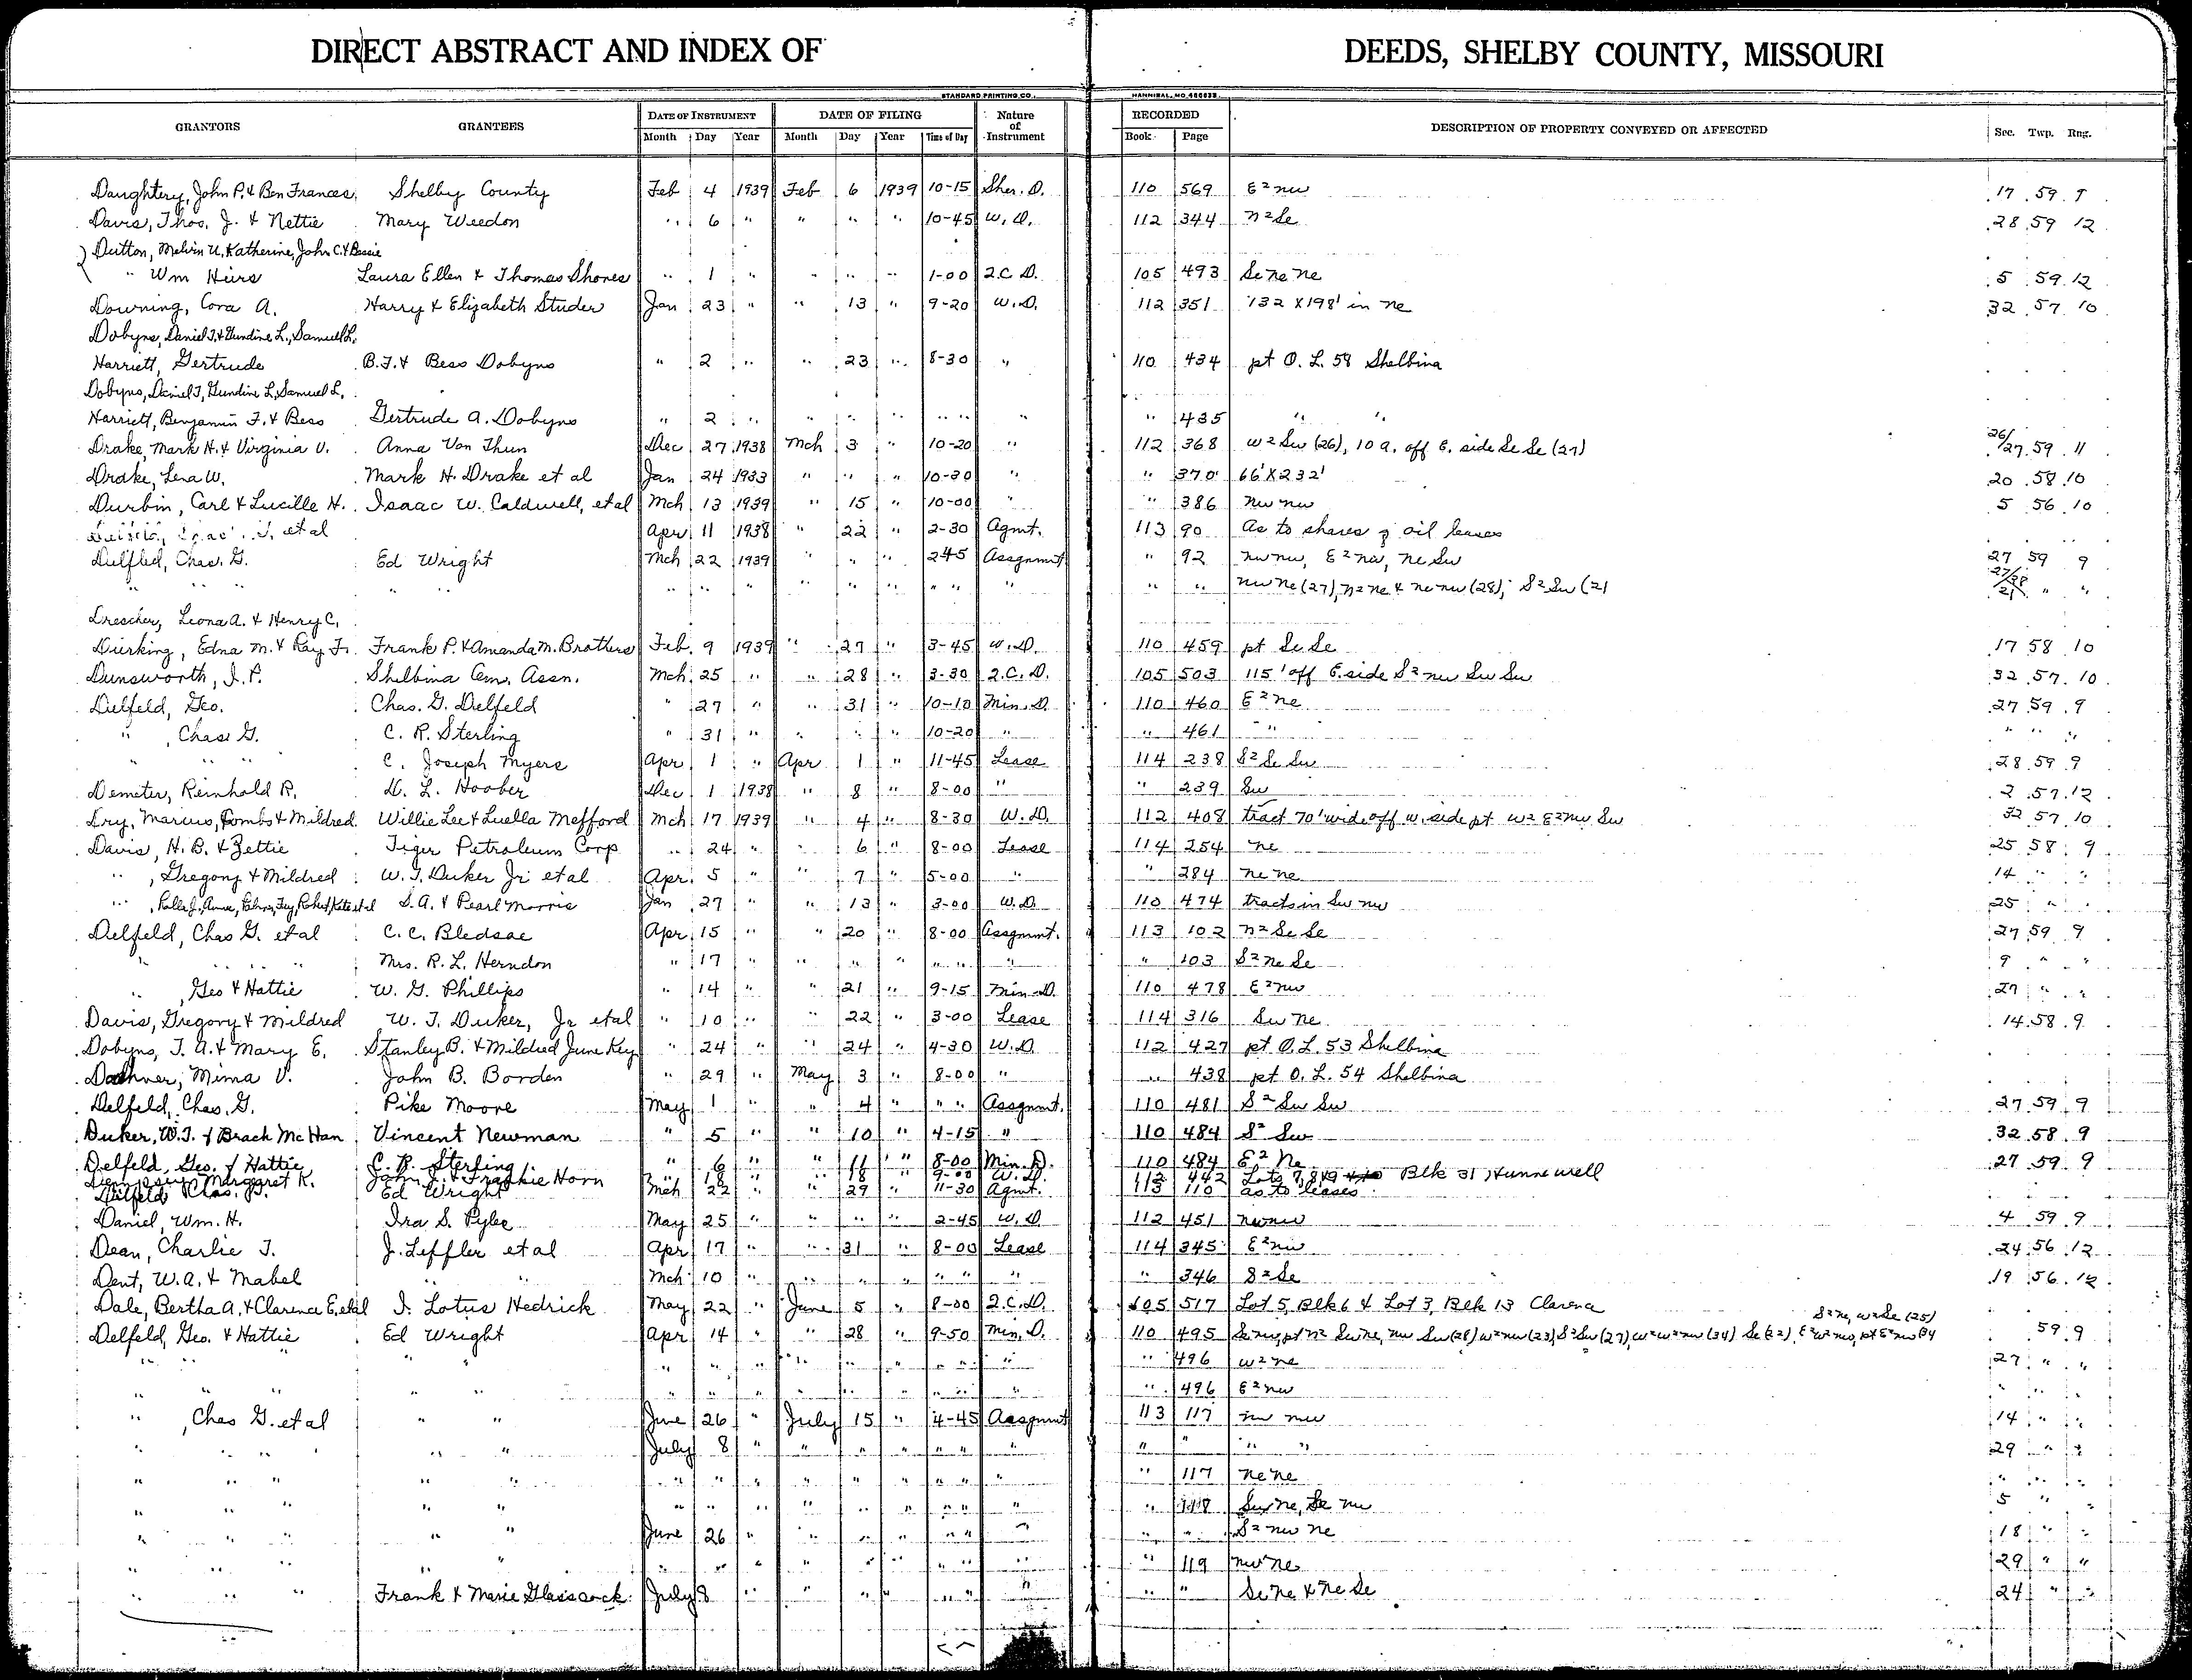 DIRECT ABSTRACT AND INDEX OF DEEDS, SHELBY COUNTY, MISSOURI
STANDARD PRINTING CO., HANNIBAL, MO.
GRANTORS GRANTEES DATE OF INSTRUMENT DATE OF FILING Nature of Instrument RECORDED DESCRIPTION OF PROPERTY CONVEYED OR AFFECTED Sec. Twp. Rng.
Month Day Year Month Day Year Time of Day Book Page
Daughtery, John P. & Ben Frances Shelby County Feb 4 1939 Feb 6 1939 10-15 Sher. D. 110 569 E² nw 17 59 9
Davis, Thos. J. & Nettie Mary Weedon " 6 " " " " 10-45 W. D. 112 344 n² Se 28 59 12
Dutton, Melvin U. Katherine, John C. & Bessie
" Wm Heirs Laura Ellen & Thomas Shores " 1 " " " " 1-00 2. C. D. 105 493 Se ne ne 5 59 12
Downing, Cora A. Harry & Elizabeth Studer Jan 23 " " 13 " 9-20 W. D. 112 351 132 X 198' in ne 32 57 10
Dobyns, Daniel T. & Gundine L., Samuel L.
Harriett, Gertrude B. F. & Bess Dobyns " 2 " " 23 " 8-30 " 110 434 pt O. L. 58 Shelbina
Dobyns, Daniel T, Gundine L, Samuel L.
Harriett, Benjamin F. & Bess Gertrude A. Dobyns " 2 " " " " " " " " 435 " "
Drake, Mark H. & Virginia V. Anna Von Thun Dec 27 1938 Mch 3 " 10-20 " 112 368 w² Sw (26), 10 a. off E. side Se Se (27) 26/27 59 11
Drake, Lena W. Mark H. Drake et al Jan 24 1933 " " " 10-30 " " 370 66' X 232' 20 58 10
Durbin, Carl & Lucille H. Isaac W. Caldwell, et al Mch 13 1939 " 15 " 10-00 " " 386 nw nw 5 56 10
et al Apr 11 1938 " 22 " 2-30 Agmt. 113 90 As to shares of oil leases
Delfled, Chas. G. Ed Wright Mch 22 1939 " " " 245 Assgnmt " 92 nw nw, E² nw, ne Sw 27 59 9
" " " " " " " " " " " " " " " " nw ne (27), n² ne & ne nw (28), S² Sw (21 27/28/21 " "
Drescher, Leona A. & Henry C.
Durking, Edna M. & Ray F. Frank P. & Amanda M. Brothers Feb. 9 1939 " 27 " 3-45 W. D. 110 459 pt Se Se 17 58 10
Dunsworth, J. P. Shelbina Cem. Assn. Mch 25 " " 28 " 3-30 2. C. D. 105 503 115' off E. side S² nw Sw Sw 32 57 10
Delfeld, Geo. Chas. G. Delfeld " 27 " " 31 " 10-10 Min. D. 110 460 E² ne 27 59 9
" , Chas G. C. R. Sterling " 31 " " " " 10-20 " " 461 " " " " "
" " " C. Joseph Myers Apr 1 " Apr 1 " 11-45 Lease 114 238 S² Se Sw 28 59 9
Demeter, Reinhold R. D. L. Hoober Dec 1 1938 " 8 " 8-00 " " 239 Sw 2 57 12
Dry, Marcus, Tombs & Mildred Willie Lee & Luella Mefford Mch 17 1939 " 4 " 8-30 W. D. 112 408 tract 70' wide off w. side pt w² E² nw Sw 32 57 10
Davis, H. B. & Zettie Tiger Petroleum Corp " 24 " " 6 " 8-00 Lease 114 254 ne 25 58 9
" , Gregory & Mildred W. T. Duker Jr et al Apr. 5 " " 7 " 5-00 " " 284 ne ne 14 " "
" S. A. & Pearl Morris Jan 27 " " 13 " 3-00 W. D. 110 474 tracts in Sw nw 25 " "
Delfeld, Chas G. et al C. C. Bledsoe Apr 15 " " 20 " 8-00 Assgnmt. 113 102 n² Se Se 27 59 9
" " " Mrs. R. L. Herndon " 17 " " " " " " " " 103 S² ne Se 9 " "
" , Geo & Hattie W. G. Phillips " 14 " " 21 " 9-15 Min. D. 110 478 E² nw 27 " "
Davis, Gregory & Mildred W. T. Duker, Jr et al " 10 " " 22 " 3-00 Lease 114 316 Sw ne 14 58 9
Dobyns, T. A. & Mary E. Stanley B. & Mildred June Key " 24 " " 24 " 4-30 W. D. 112 427 pt O. L. 53 Shelbina
Mima V. John B. Borden " 29 " May 3 " 8-00 " " 438 pt O. L. 54 Shelbina
Delfeld, Chas. G. Pike Moore May 1 " " 4 " " " Assgnmt. 110 481 S² Sw Sw 27 59 9
Duker, W. T. & Brach McHan Vincent Newman " 5 " " 10 " 4-15 " 110 484 S² Sw 32 58 9
Delfeld, Geo. & Hattie C. R. Sterling " 6 " " 11 " 8-00 Min. D. 110 484 E² Ne 27 59 9
Margaret K. John J. & Frankie Horn " 18 " " 18 " 9-00 W. D. 112 442 Lots 7, 8, & 9 Blk 31, Hunnewell
Delfeld, Chas. G. Ed Wright Mch 22 " " 29 " 11-30 Agmt. 113 110 as to leases
Daniel, Wm. H. Ira S. Pyle May 25 " " " " 2-45 W. D. 112 451 nw nw 4 59 9
Dean, Charlie T. J. Leffler et al Apr 17 " " 31 " 8-00 Lease 114 345 E² nw 24 56 12
Dent, W. A. & Mabel " " Mch 10 " " " " " " " " 346 S² Se 19 56 12
Dale, Bertha A. & Clarence E, et al I. Lotus Hedrick May 22 " June 5 " 8-00 2. C. D. 105 517 Lot 5, Blk 6 & Lot 3, Blk 13 Clarence
S² ne, w² Se (25)
Delfeld, Geo. & Hattie Ed Wright Apr 14 " " 28 " 9-50 Min. D. 110 495 Se nw, pt n² Sw ne, nw Sw (28) w² nw (23) S² Sw (27), w² w² nw (34) Se (22), E² w² nw, pt E² nw 34 59 9
" " " " " " " " " " " " " " 496 w² ne 27 " "
" " " " " " " " " " " " " " 496 E² nw " " "
" , Chas G. et al " " June 26 " July 15 " 4-45 Assgnmt 113 117 nw nw 14 " "
" " " " " July 8 " " " " " " " " " " " 29 " "
" " " " " " " " " " " " " " " 117 ne ne " " "
" " " " " " " " " " " " " " " 118 Sw ne, Se nw 5 " "
" " " " " June 26 " " " " " " " " " S² nw ne 18 " "
" " " " " " " " " " " " " " " 119 nw ne 29 " "
" " " Frank & Marie Glasscock July 8 " " " " " " " " " Se ne & ne Se 24 " "